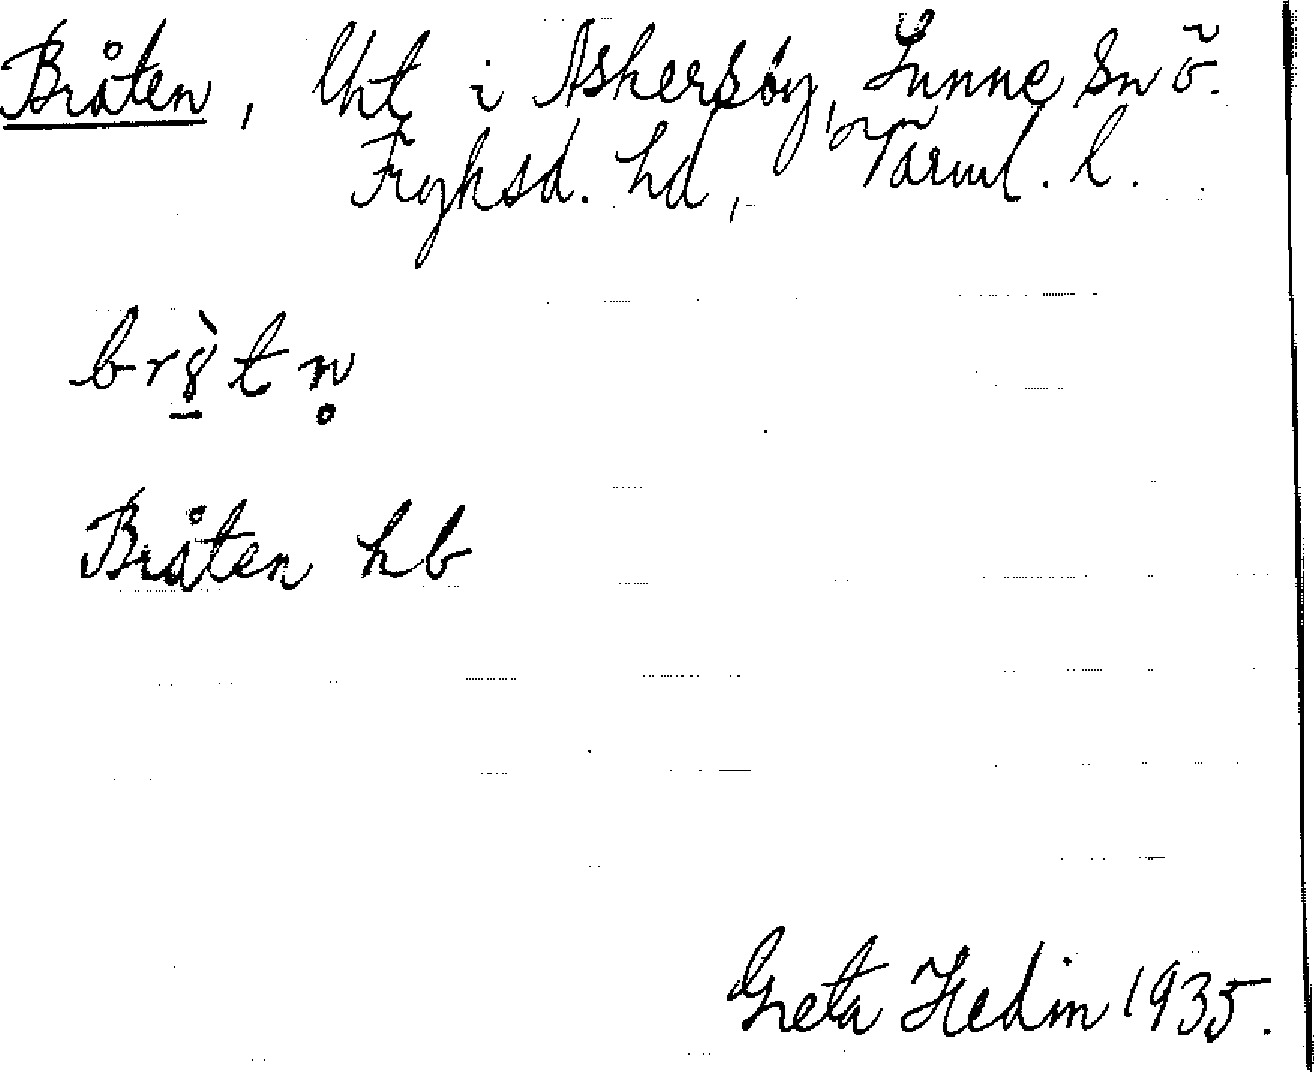 Bråten, lht i Askersby, Sunne sn ö.
Fryksd. hd, Värml. l.
br8̱̀tn̥
Bråten hb
Greta Hedin 1935.